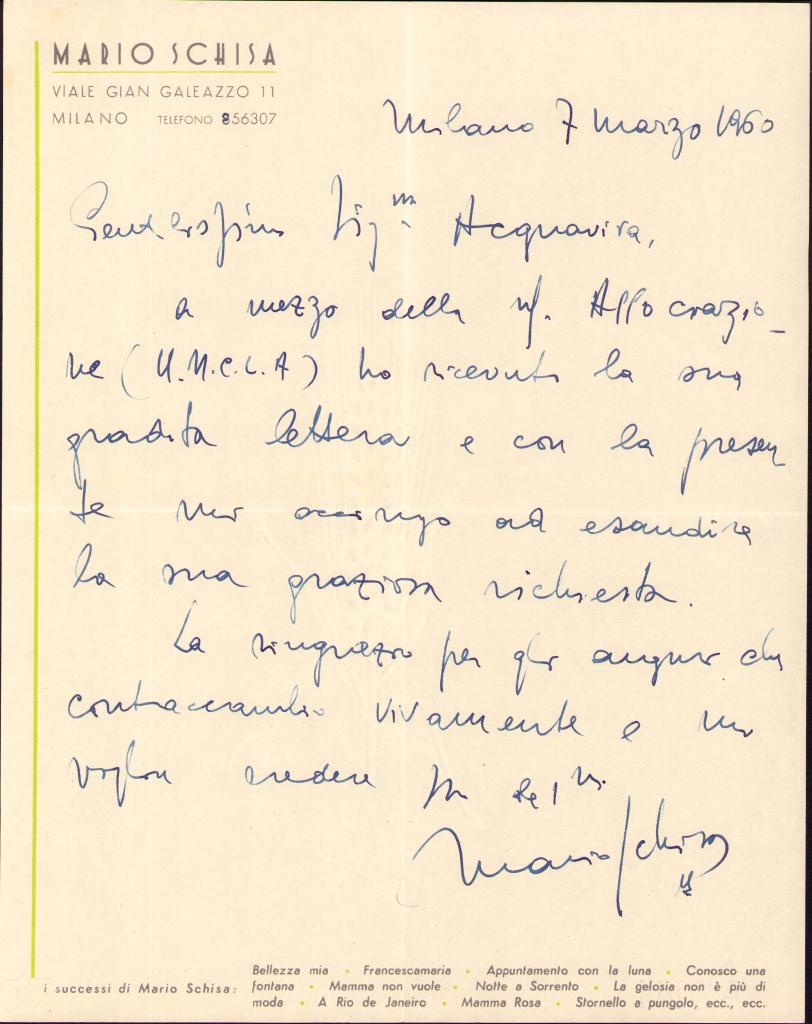 MARIO SCHISA
VIALE GIAN GALEAZZO 11
MILANO TELEFONO 856307
Milano 7 Marzo 1960
Gentilissima Sig.na Acquaviva,
a mezzo della Associazio-
ne (U.N.C.L.A) ho ricevuto la sua
gradita lettera e con la presen
te mi accingo ad esaudire
la sua graziosa richiesta.
La ringrazio per gli auguri che
contraccambio vivamente e mi
voglia credere
Mario Schisa
i successi di Mario Schisa:
Bellezza mia • Francescamaria • Appuntamento con la luna • Conosco una
fontana • Mamma non vuole • Notte a Sorrento • La gelosia non è più di
moda • A Rio de Janeiro • Mamma Rosa • Stornello a pungolo, ecc., ecc.